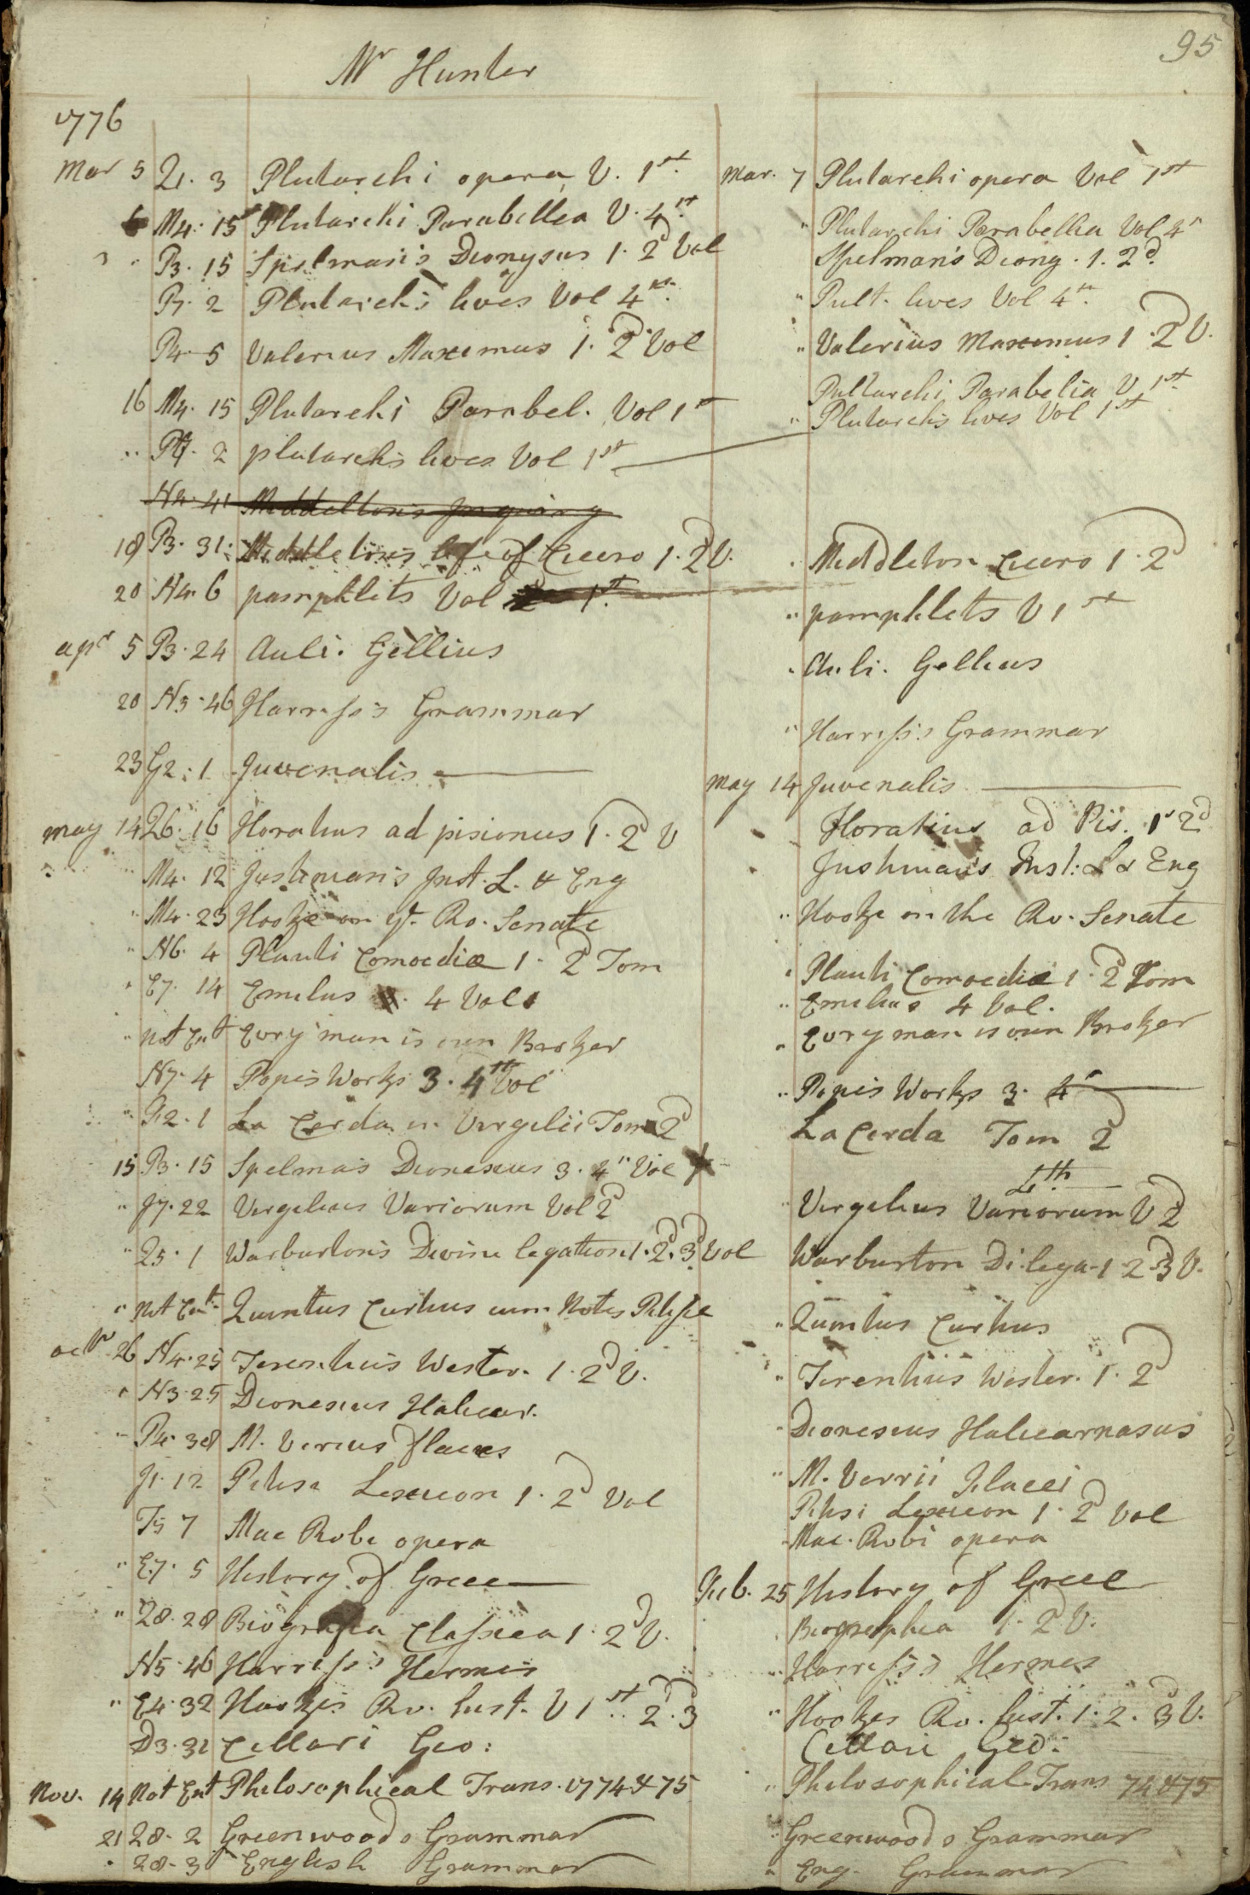 95
Mr Hunter
1776
Mar 5 Q1. 3 Plutarchi opera V. 1st Mar. 7 Plutarchi opera Vol 1st
6 M4. 15 Plutarchi Parabellea V. 4th " Plutarchi Parabellia Vol 4th
" P3. 15 Spelman's Dionysus 1. 2d Vol Spelman's Diony. 1. 2d
P7. 2 Plutarch's lives Vol 4th " Pult. lives Vol 4th
P4. 5 Valerius Maximus 1. 2d Vol " Valerius Maximus 1. 2d V.
16 M4. 15 Plutarchi Parabel. Vol 1st Pultarchi Parabelia V 1st
" P7. 2 plutarchs lives Vol 1st " Plutarchs lives Vol 1st
N4. 41 Middelton's Inquiry
18 P3. 31. Middletons life of Cicero 1. 2d V. " Middleton Cicero 1. 2d
20 N4. 6 pamphlets Vol 1st " pamphlets V 1st
apr 5 P3. 24 Auli. Gellius " Auli. Gellius
20 N5. 46 Harress's Grammar " Harress's Grammar
23 G2. 1 Juvenalis May 14 Juvenalis
may 14 Q6. 16 Horatius ad pisiones 1. 2d V Horatius ad Pis. 1. 2d
" M4. 12 Justinian's Inst. L. & Eng Justinian's Inst: L & Eng
" M4. 23 Hooke on ye. Ro. Senate " Hooke on the Ro. Senate
" N6. 4 Plauti Comoediæ 1. 2d Tom " Plauti Comoediæ 1. 2d Tom
" E7. 14 Emilius 4 Vols " Emilius 4 Vol.
" Not Ent Evry man is own Broker " Evry man is own Broker
N7. 4 Popes Works 3. 4th Vol " Popes Works 3. 4th
" F2. 1 La Cerda in Virgilii Tom 2d La Cerda Tom 2d
15 P3. 15 Spelmas Dionesius 3. 4th Vol 4th
" J7. 22 Virgilius Variorum Vol 2d " Virgilius Variorum V 2d
" Q5. 1 Warburton's Divine legation 1. 2d. 3d Vol Warburton Di. lega. 1 2. 3d V.
" Not Ent. Quintus Curtius cum Notis Pitisci " Quintus Curtius
octr 26 N4. 25 Terentius Wester. 1. 2d V. " Terentius Wester. 1. 2d
" N3. 25 Dionesius Halicar. " Dionesius Halicarnasus
" P4. 38 M. Verius Flaces " M. Verrii Flacci
J1. 12 Pitisci Lexicon 1. 2d Vol Pitisi Lexicon 1. 2d Vol
T5 7 Mac Robi opera " Mac. Robi opera
" E7. 5 History of Greece Feb. 25 History of Greece
" Q8. 28 Biografia Classica 1. 2d V. " Biographia 1. 2d V.
N5. 46 Harress's Hermis " Harress's Hermes
" E4. 32 Hookes Ro. hist. V 1st. 2. 3d " Hookes Ro. hist. 1. 2. 3d V.
D3. 31 Cellari Geo: Cellari Geo:
Nov. 14 Not Ent Philosophical Trans. 1774 & 75 " Philosophical Trans 74 & 75
21 Q8. 2 Greenwoods Grammar " Greenwoods Grammar
" Q8. 3 English Grammar " Eng. Grammar